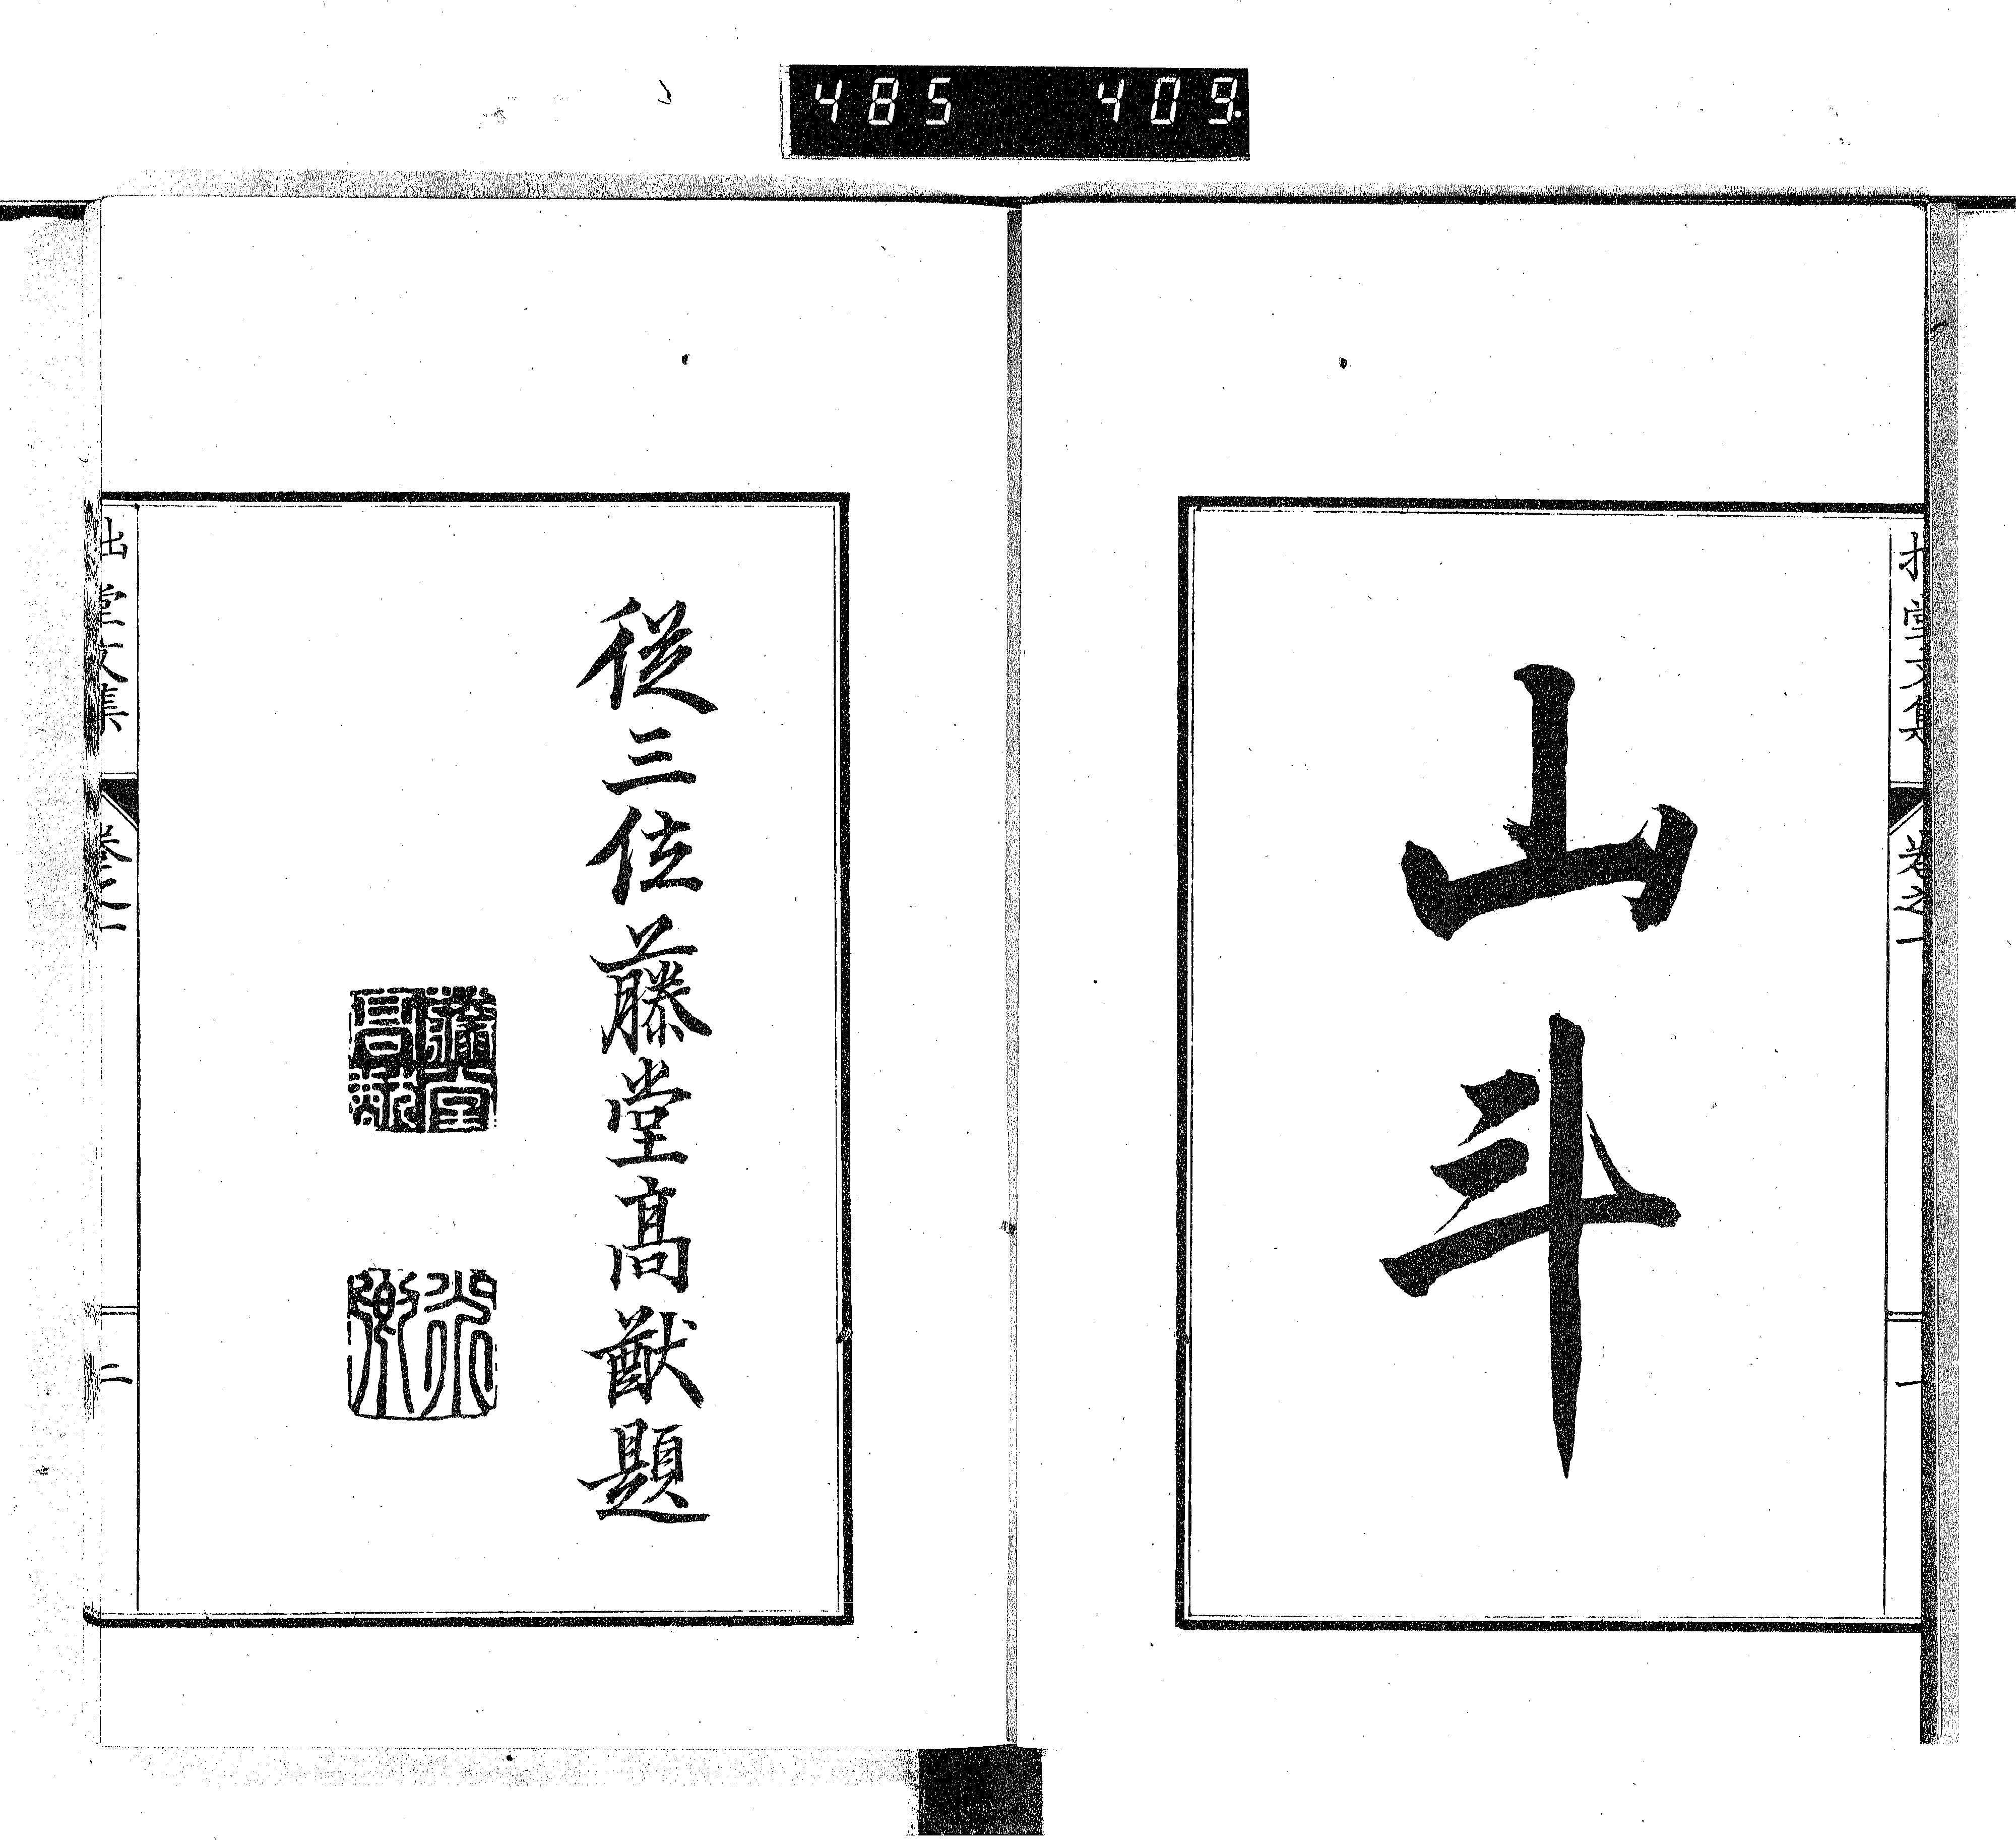 485 409.
山斗
從三位藤堂高猷題
藤堂高猷
堂文集
卷之一
一
堂文集
卷之一
二